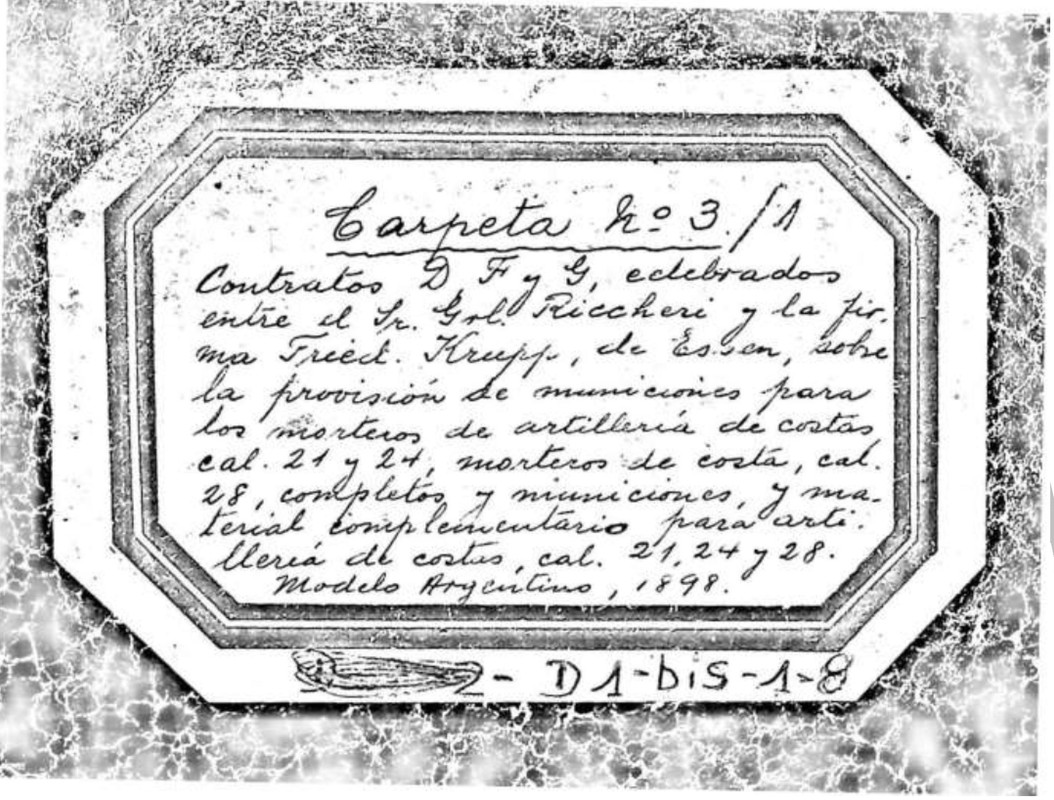 Carpeta No 3./1
Contratos D F y G, celebrados
entre el Sr. Grl. Riccheri y la fir-
ma Fried. Krupp, de Essen, sobre
la provisión de municiones para
los morteros de artillería de costas
cal. 21 y 24, morteros de costa, cal.
28, completos y municiones, y ma-
terial complementario para arti-
llería de costas, cal. 21, 24 y 28.
Modelo Argentino, 1898.
- D1-biS-1-8